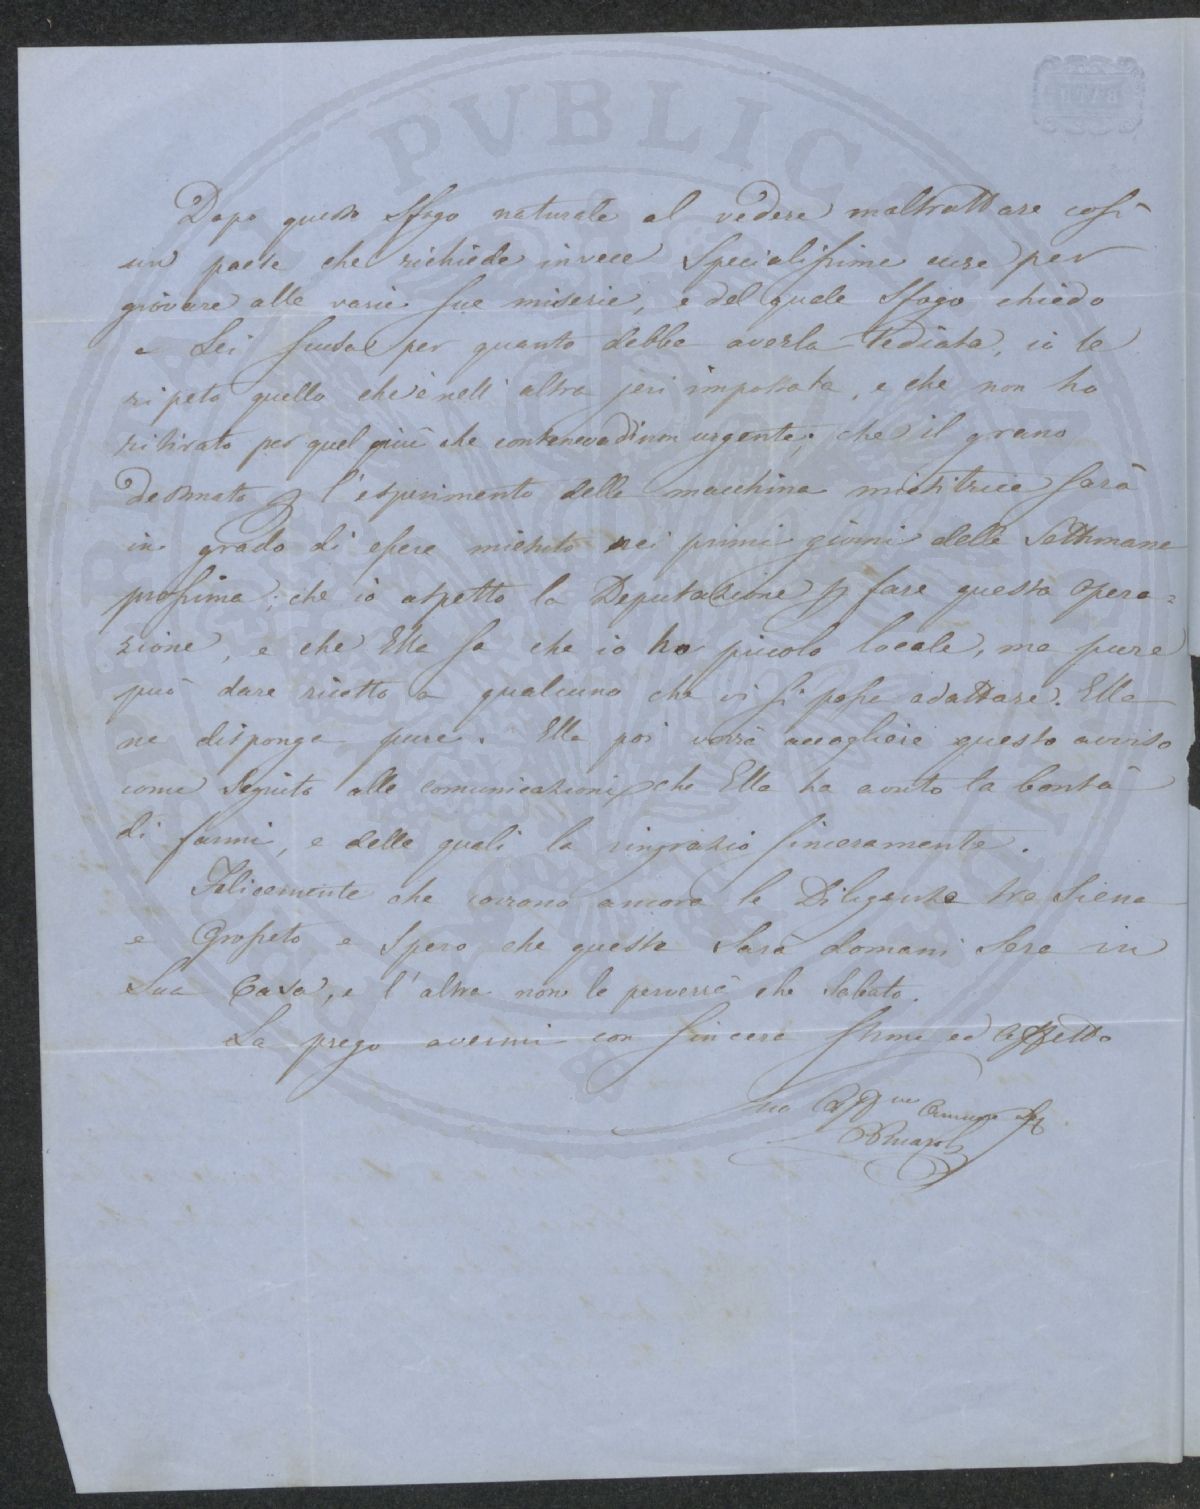 Dopo questo sfogo naturale al vedere maltrattare così
un paese che richiede invece specialissime cure per
giovare alle varie sue miserie, e del quale sfogo chiedo
a Lei scusa per quanto debba averla tediata, io le
ripeto quello che è nell'altra jeri impostata, e che non ho
ritirato per quel più che conteneva urgente; che il grano
destinato p l'esperimento della macchina mietitrice sarà
in grado di essere mietuto nei primi giorni della settimana
prossima; che io aspetto la Deputazione p fare questa opera=
zione, e che Ella sa che io ho piccolo locale, ma pure
può dare ricetto a qualcuno che vi si possa adattare. Ella
ne disponga pure. Ella poi vorrà accogliere questo avviso
come seguito alle comunicazioni che Ella ha avuto la bontà
di farmi, e delle quali la ringrazio sinceramente.
Felicemente che corrono ancora le Diligenze tra Siena
e Grosseto e spero che questa sarà domani sera in
Sua Casa, e l'altra non le perverrà che Sabato.
La prego avermi con sincera stima ed affetto
Suo
PVBLICA